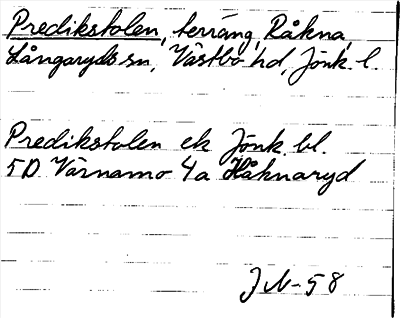 Predikstolen, terräng, Råkna,
Långaryds sn, Västbo hd, Jönk. l.
Predikstolen ek Jönk. bl.
5D Värnamo 4a Håknaryd
JN-58